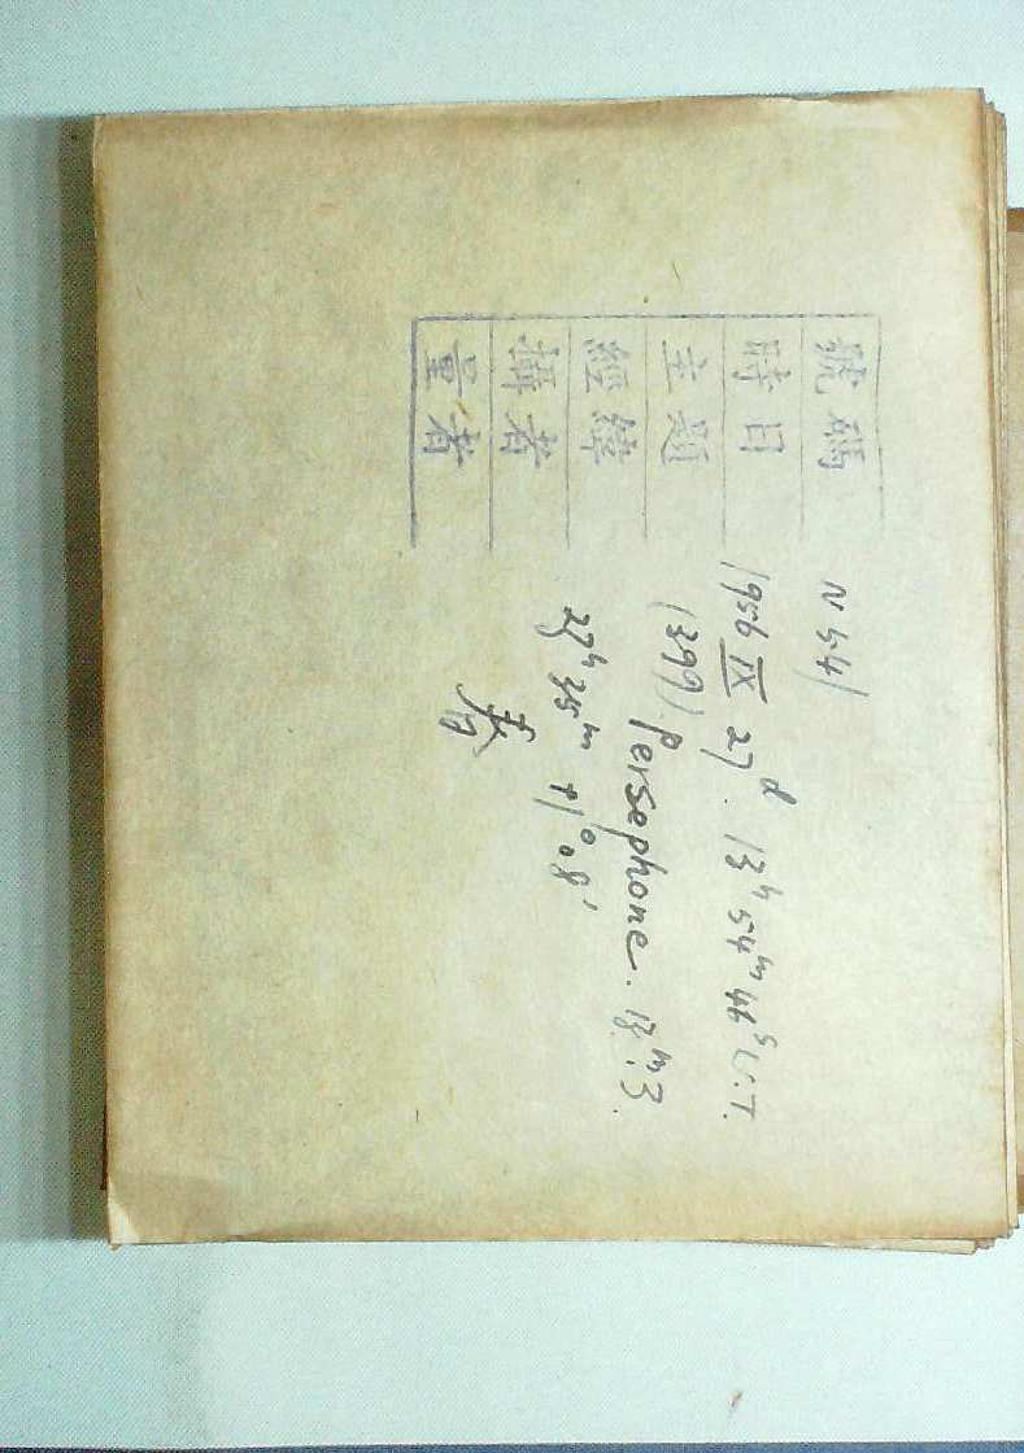 號碼 N 541
時日 1956 IX 27d. 13h 54m 46s U.T.
主題 (399) Persephone. 13m.3
經緯 23h 35m +1° 08'
攝者
量者